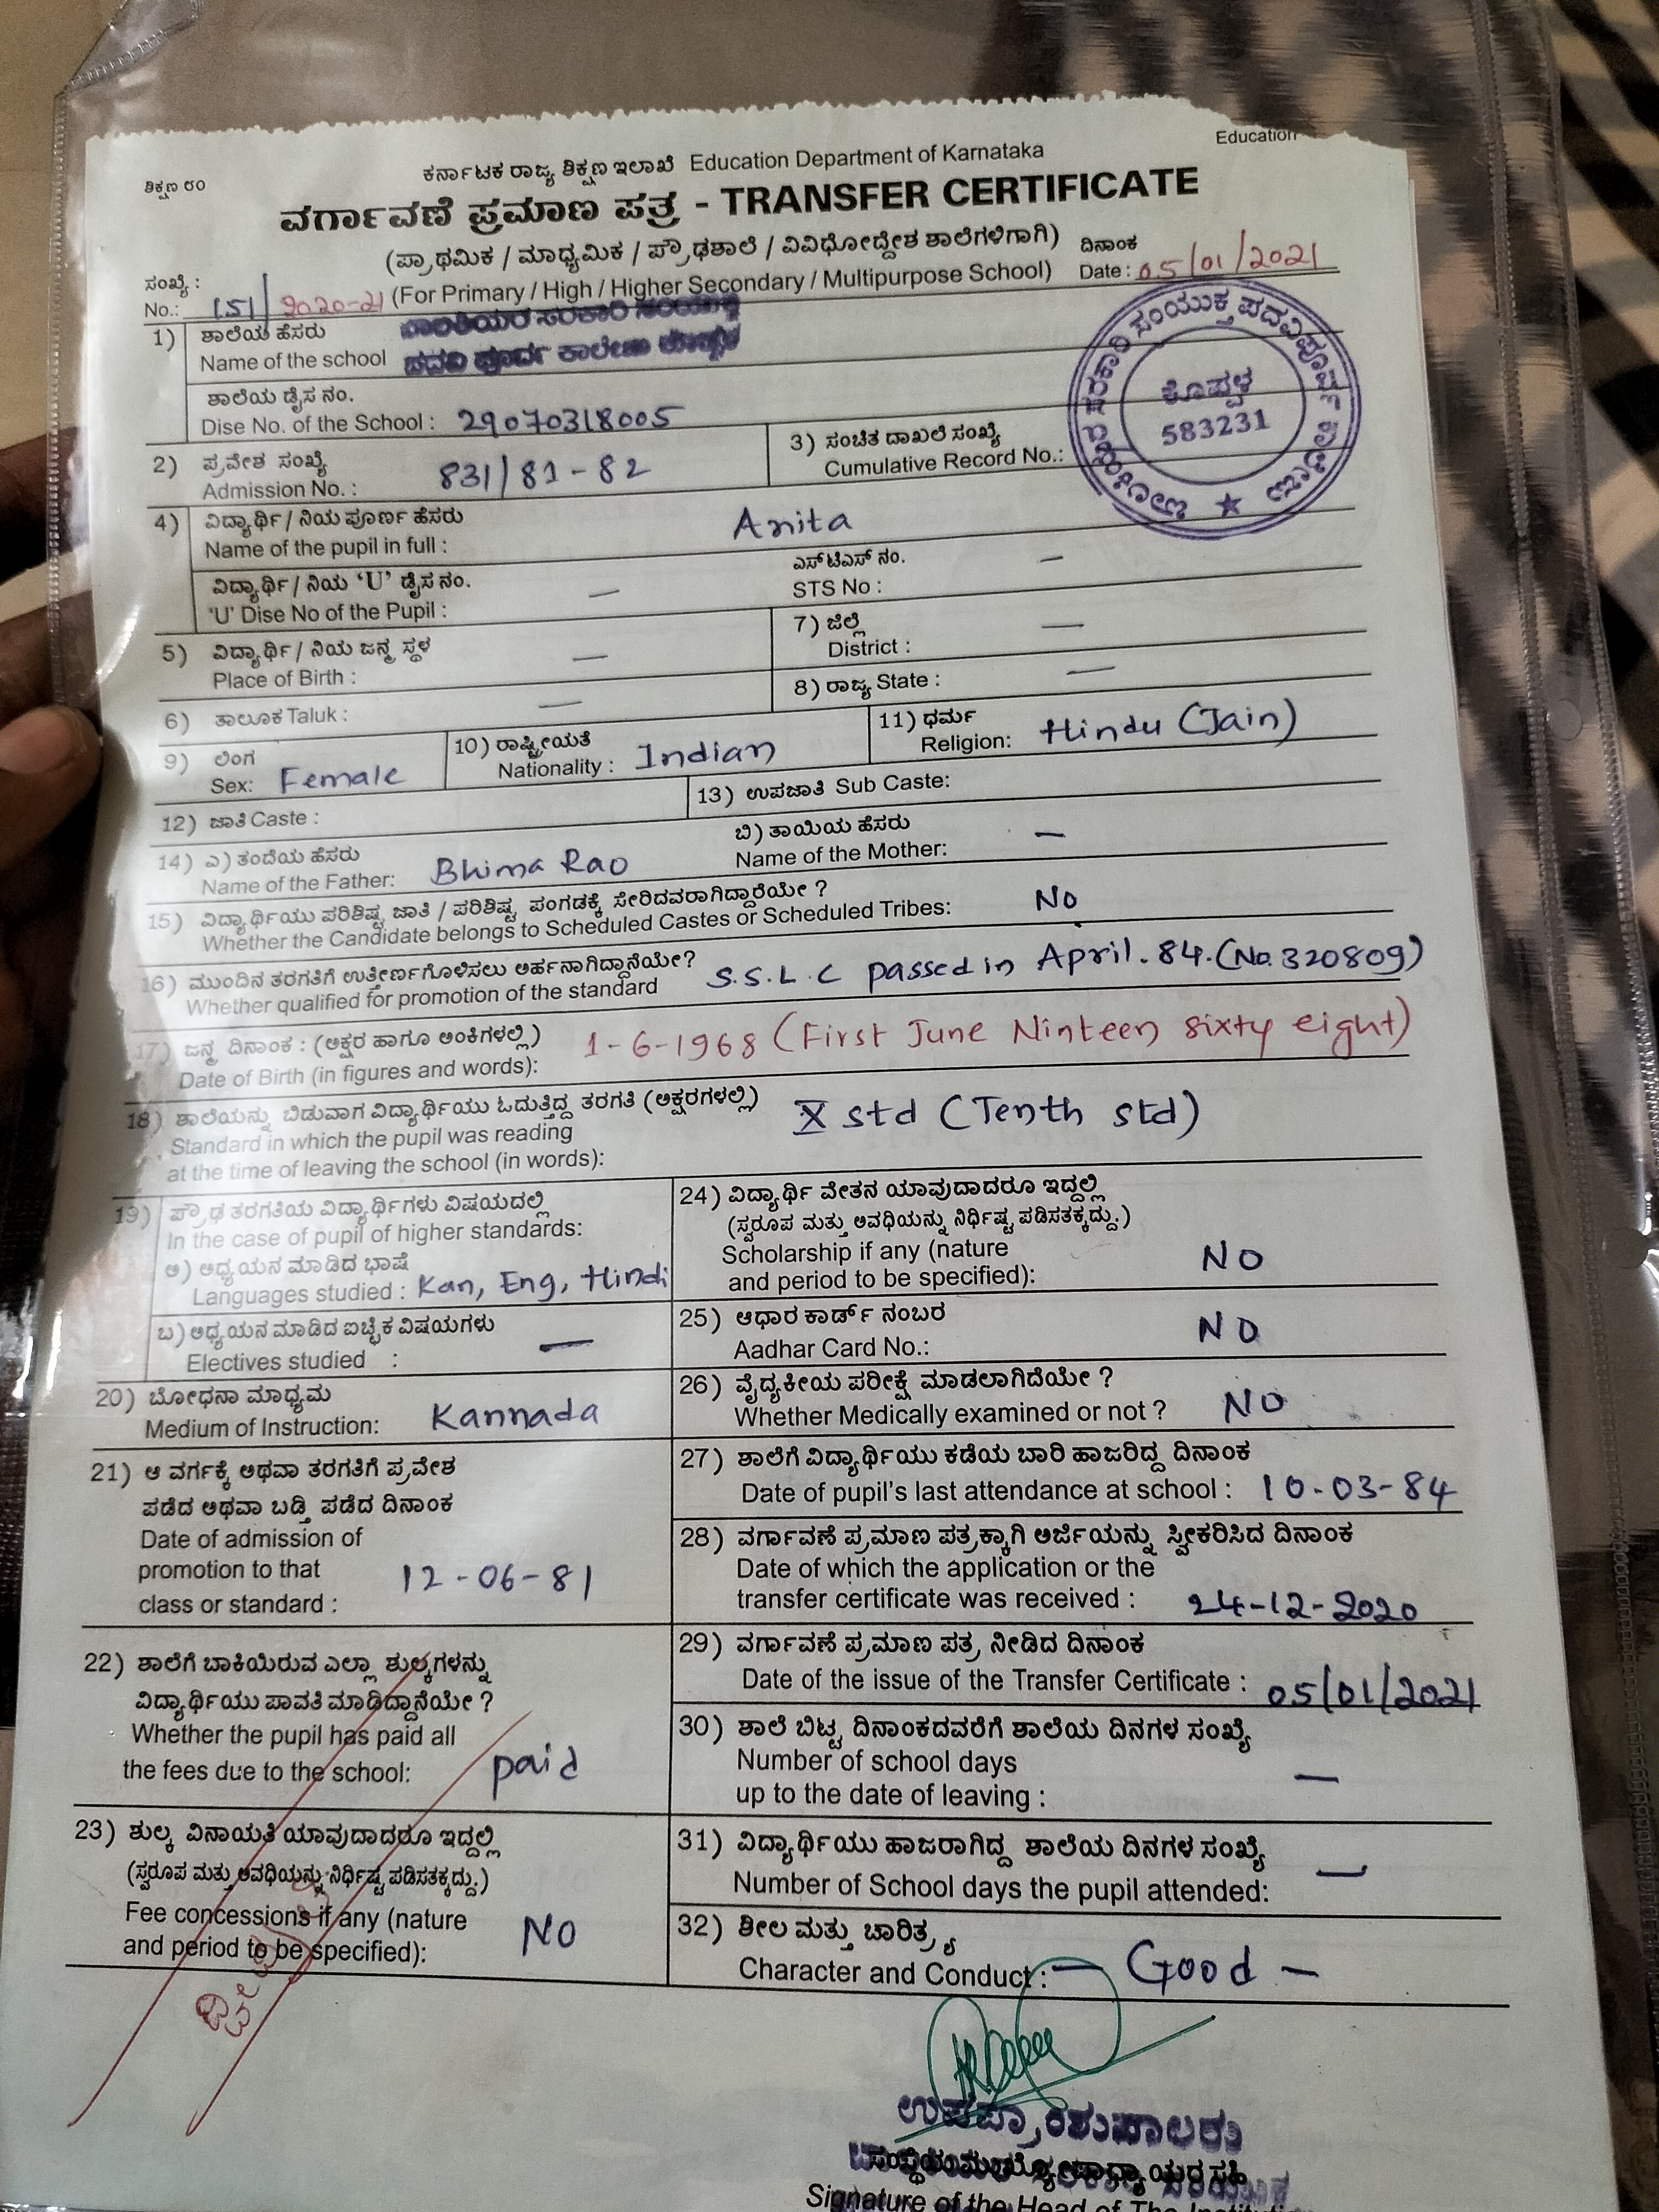 Education
ಶಿಕ್ಷಣ ೮೦
ಕರ್ನಾಟಕ ರಾಜ್ಯ ಶಿಕ್ಷಣ ಇಲಾಖೆ Education Department of Karnataka
ವರ್ಗಾವಣೆ ಪ್ರಮಾಣ ಪತ್ರ - TRANSFER CERTIFICATE
(ಪ್ರಾಥಮಿಕ / ಮಾಧ್ಯಮಿಕ / ಪ್ರೌಢಶಾಲೆ / ವಿವಿಧೋದ್ದೇಶ ಶಾಲೆಗಳಿಗಾಗಿ) ದಿನಾಂಕ
ಸಂಖ್ಯೆ :
No.: 151/2020-21 (For Primary / High / Higher Secondary / Multipurpose School) Date : 05/01/2021
1) ಶಾಲೆಯ ಹೆಸರು ಬಾಲಕಿಯರ ಸರಕಾರಿ ಸಂಯುಕ್ತ
Name of the school ಪದವಿ ಪೂರ್ವ ಕಾಲೇಜು ಕೊಪ್ಪಳ
ಬಾಲಕಿಯರ ಸರಕಾರಿ ಸಂಯುಕ್ತ ಪದವಿಪೂರ್ವ ಕಾಲೇಜು
ಕೊಪ್ಪಳ
583231
ಶಾಲೆಯ ಡೈಸ ನಂ.
Dise No. of the School : 29070318005
2) ಪ್ರವೇಶ ಸಂಖ್ಯೆ
Admission No. : 831/81-82
3) ಸಂಚಿತ ದಾಖಲೆ ಸಂಖ್ಯೆ
Cumulative Record No.:
4) ವಿದ್ಯಾರ್ಥಿ / ನಿಯ ಪೂರ್ಣ ಹೆಸರು
Name of the pupil in full : Anita
ವಿದ್ಯಾರ್ಥಿ / ನಿಯ 'U' ಡೈಸ ನಂ.
'U' Dise No of the Pupil : —
ಎಸ್‌ಟಿಎಸ್ ನಂ.
STS No : —
5) ವಿದ್ಯಾರ್ಥಿ / ನಿಯ ಜನ್ಮ ಸ್ಥಳ
Place of Birth : —
7) ಜಿಲ್ಲೆ
District : —
6) ತಾಲೂಕ Taluk : —
8) ರಾಜ್ಯ State : —
9) ಲಿಂಗ
Sex: Female
10) ರಾಷ್ಟ್ರೀಯತೆ
Nationality : Indian
11) ಧರ್ಮ
Religion: Hindu (Jain)
12) ಜಾತಿ Caste :
13) ಉಪಜಾತಿ Sub Caste:
14) ಎ) ತಂದೆಯ ಹೆಸರು
Name of the Father: Bhima Rao
ಬಿ) ತಾಯಿಯ ಹೆಸರು
Name of the Mother: —
15) ವಿದ್ಯಾರ್ಥಿಯು ಪರಿಶಿಷ್ಟ ಜಾತಿ / ಪರಿಶಿಷ್ಟ ಪಂಗಡಕ್ಕೆ ಸೇರಿದವರಾಗಿದ್ದಾರೆಯೇ ?
Whether the Candidate belongs to Scheduled Castes or Scheduled Tribes: No
16) ಮುಂದಿನ ತರಗತಿಗೆ ಉತ್ತೀರ್ಣಗೊಳಿಸಲು ಅರ್ಹನಾಗಿದ್ದಾನೆಯೇ?
Whether qualified for promotion of the standard S.S.L.C passed in April.84.(No.320809)
17) ಜನ್ಮ ದಿನಾಂಕ : (ಅಕ್ಷರ ಹಾಗೂ ಅಂಕಿಗಳಲ್ಲಿ)
Date of Birth (in figures and words): 1-6-1968 (First June Ninteen sixty eight)
18) ಶಾಲೆಯನ್ನು ಬಿಡುವಾಗ ವಿದ್ಯಾರ್ಥಿಯು ಓದುತ್ತಿದ್ದ ತರಗತಿ (ಅಕ್ಷರಗಳಲ್ಲಿ)
Standard in which the pupil was reading
at the time of leaving the school (in words): X std (Tenth std)
19) ಪ್ರೌಢ ತರಗತಿಯ ವಿದ್ಯಾರ್ಥಿಗಳು ವಿಷಯದಲ್ಲಿ
In the case of pupil of higher standards:
ಅ) ಅಧ್ಯಯನ ಮಾಡಿದ ಭಾಷೆ
Languages studied : Kan, Eng, Hindi
ಬ) ಅಧ್ಯಯನ ಮಾಡಿದ ಐಚ್ಛಿಕ ವಿಷಯಗಳು
Electives studied : —
20) ಬೋಧನಾ ಮಾಧ್ಯಮ
Medium of Instruction: Kannada
21) ಆ ವರ್ಗಕ್ಕೆ ಅಥವಾ ತರಗತಿಗೆ ಪ್ರವೇಶ
ಪಡೆದ ಅಥವಾ ಬಡ್ತಿ ಪಡೆದ ದಿನಾಂಕ
Date of admission of
promotion to that
class or standard : 12-06-81
22) ಶಾಲೆಗೆ ಬಾಕಿಯಿರುವ ಎಲ್ಲಾ ಶುಲ್ಕಗಳನ್ನು
ವಿದ್ಯಾರ್ಥಿಯು ಪಾವತಿ ಮಾಡಿದ್ದಾನೆಯೇ ?
Whether the pupil has paid all
the fees due to the school: paid
23) ಶುಲ್ಕ ವಿನಾಯತಿ ಯಾವುದಾದರೂ ಇದ್ದಲ್ಲಿ
(ಸ್ವರೂಪ ಮತ್ತು ಅವಧಿಯನ್ನು ನಿರ್ಧಿಷ್ಟ ಪಡಿಸತಕ್ಕದ್ದು.)
Fee concessions if any (nature
and period to be specified): NO
24) ವಿದ್ಯಾರ್ಥಿ ವೇತನ ಯಾವುದಾದರೂ ಇದ್ದಲ್ಲಿ
(ಸ್ವರೂಪ ಮತ್ತು ಅವಧಿಯನ್ನು ನಿರ್ಧಿಷ್ಟ ಪಡಿಸತಕ್ಕದ್ದು.)
Scholarship if any (nature
and period to be specified): NO
25) ಆಧಾರ ಕಾರ್ಡ್ ನಂಬರ
Aadhar Card No.: NO
26) ವೈದ್ಯಕೀಯ ಪರೀಕ್ಷೆ ಮಾಡಲಾಗಿದೆಯೇ ?
Whether Medically examined or not ? NO
27) ಶಾಲೆಗೆ ವಿದ್ಯಾರ್ಥಿಯು ಕಡೆಯ ಬಾರಿ ಹಾಜರಿದ್ದ ದಿನಾಂಕ
Date of pupil's last attendance at school : 10-03-84
28) ವರ್ಗಾವಣೆ ಪ್ರಮಾಣ ಪತ್ರಕ್ಕಾಗಿ ಅರ್ಜಿಯನ್ನು ಸ್ವೀಕರಿಸಿದ ದಿನಾಂಕ
Date of which the application or the
transfer certificate was received : 24-12-2020
29) ವರ್ಗಾವಣೆ ಪ್ರಮಾಣ ಪತ್ರ ನೀಡಿದ ದಿನಾಂಕ
Date of the issue of the Transfer Certificate : 05/01/2021
30) ಶಾಲೆ ಬಿಟ್ಟ ದಿನಾಂಕದವರೆಗೆ ಶಾಲೆಯ ದಿನಗಳ ಸಂಖ್ಯೆ
Number of school days
up to the date of leaving : —
31) ವಿದ್ಯಾರ್ಥಿಯು ಹಾಜರಾಗಿದ್ದ ಶಾಲೆಯ ದಿನಗಳ ಸಂಖ್ಯೆ
Number of School days the pupil attended: —
32) ಶೀಲ ಮತ್ತು ಚಾರಿತ್ರ್ಯ
Character and Conduct : — Good —
ಉಪಪ್ರಾಂಶುಪಾಲರು
ಸಂಸ್ಥೆಯ ಮುಖ್ಯೋಪಾಧ್ಯಾಯರ ಸಹಿ
Signature of the Head of The